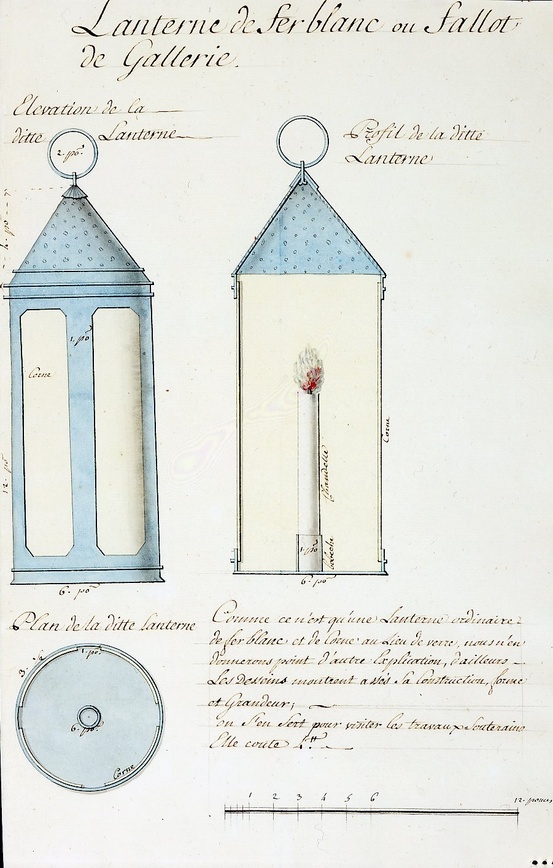 Lanterne de Ferblanc ou Fallot
de Gallerie.
Elevation de la
ditte Lanterne
Profil de la ditte
Lanterne
2. po.
1. po
Corne
12. po
6. po
Corne
Chandelle
1. po
bobeche
6. po
Plan de la ditte lanterne
1. po.
6. po.
Corne
Comme ce n'est qu'une Lanterne ordinaire
de fer blanc et de Corne au Lieu de verre, nous n'en
donnerons point d'autre Explication, d'ailleurs
Les Desseins montrent assés sa Construction, forme
et Grandeur;
on S'en Sert pour visiter les travaux Souterains
Elle coute
1 2 3 4 5 6 12. pouces